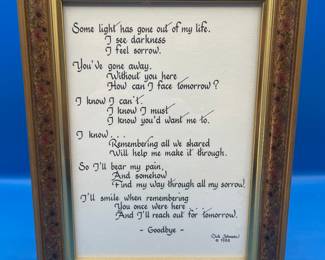 Some light has gone out of my life.
I see darkness
I feel sorrow.
You've gone away.
Without you here
How can I face tomorrow?
I know I can't.
I know I must
I know you'd want me to.
I know . . .
Remembering all we shared
Will help me make it through.
So I'll bear my pain,
And somehow
Find my way through all my sorrow.
I'll smile when remembering
You once were here . . .
And I'll reach out for tomorrow.
- Goodbye -
© 1986